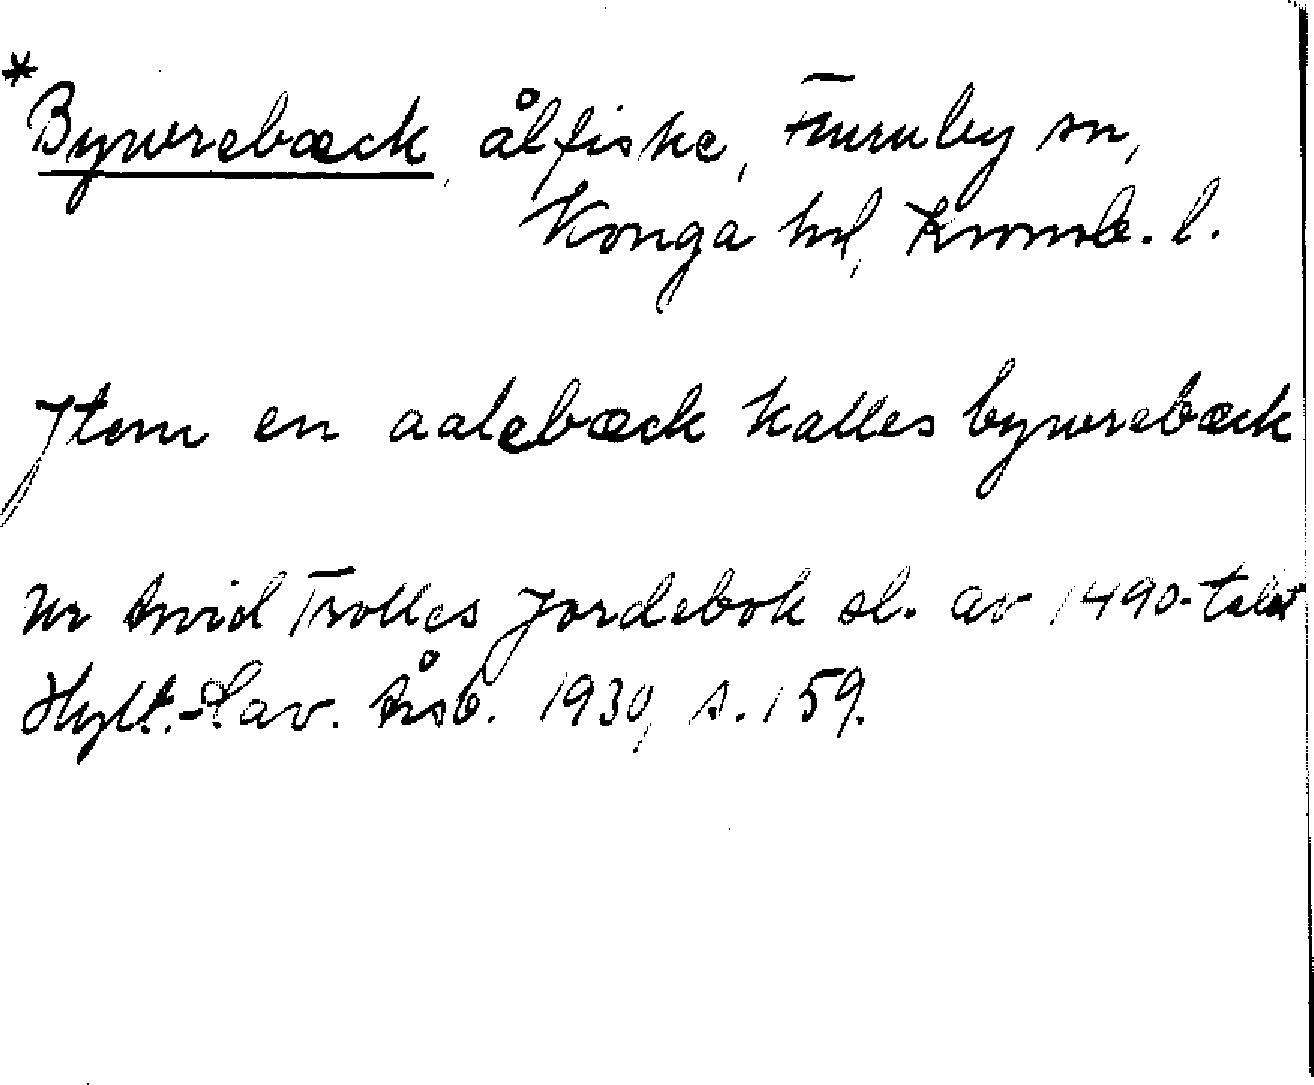 *Bywrebæck, ålfiske, Furuby sn,
Konga hd, Kronob. l.
Jtem en aalebæck kalles bywrebæck
Ur Arvid Trolles Jordebok sl. av 1490-talet
Hylt.-Cav. Årsb. 1930, s. 159.